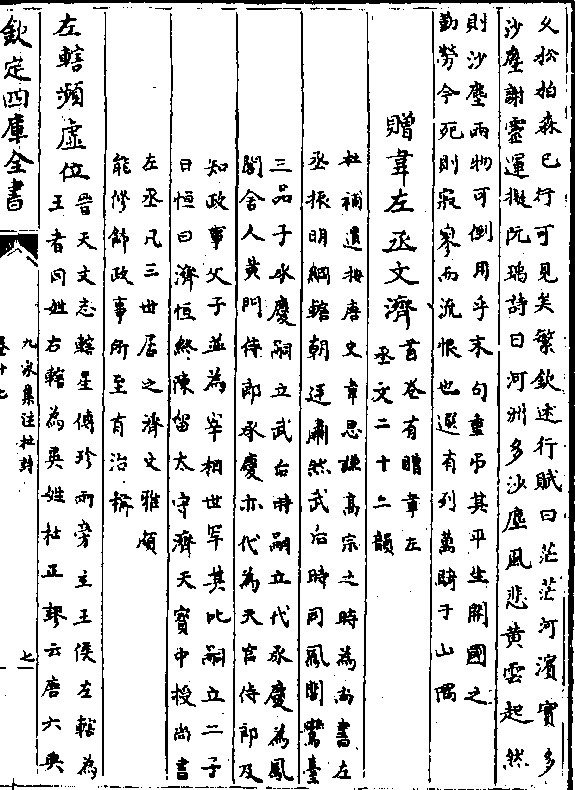 久松柏森已行可見矣繁欽述行賦曰茫茫河濱實多
沙塵謝靈運擬阮瑀詩曰河洲多沙塵風悲黃雲起然
則沙塵兩物可倒用乎末句重弔其平生開國之
勤勞今死則寂寥而流恨也選有列萬騎于山隅
贈韋左丞文濟
首卷有贈韋左
丞丈二十二韻
杜補遺按唐史韋思謙高宗之時為尚書左
丞振明綱轄朝廷肅然武后時同鳳閣鸞臺
三品子承慶嗣立武后時嗣立代承慶為鳳
閣舍人黃門侍郎承慶亦代為天官侍郎及
知政事父子並為宰相世罕其比嗣立二子
曰恒曰濟恒終陳留太守濟天寳中授尚書
左丞凡三世居之濟文雅頗
能修飾政事所至有治稱
左轄頻虛位
晉天文志轄星傅軫兩旁主王侯左轄為
王者同姓右轄為異姓杜正謬云唐六典
欽定四庫全書
九家集注杜詩
卷十七
七